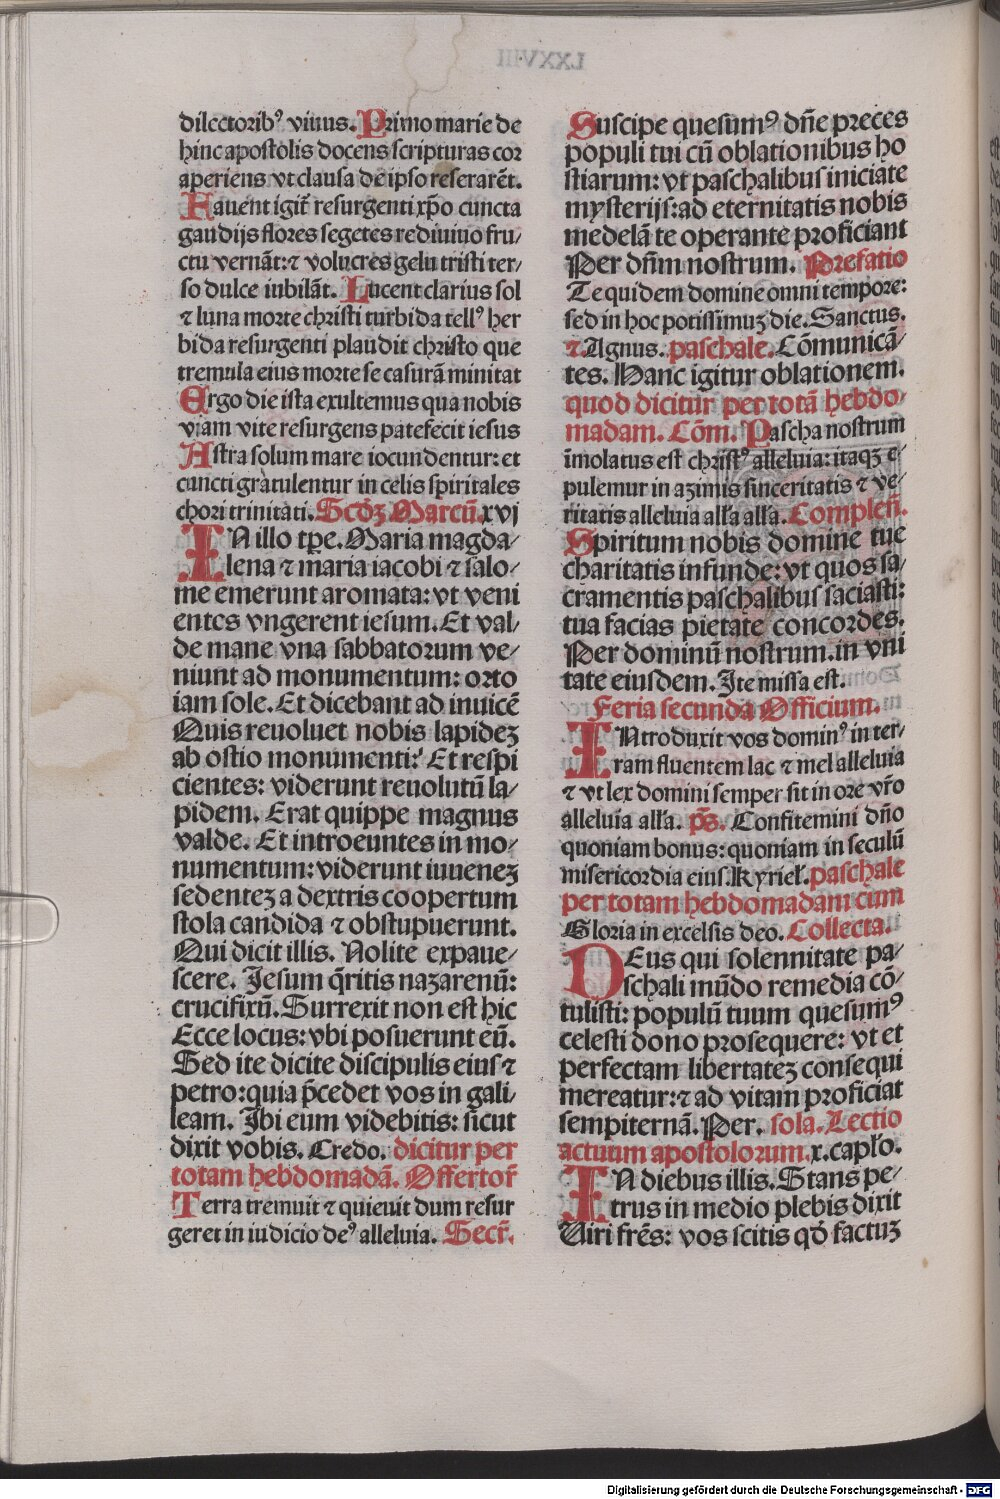 dilectoribꝰ viuus. Primo marie de
hinc apostolis docens scripturas cor
aperiens vt clausa de ipso reserarẽt.
Fauent igit̃ resurgenti xp̃o cuncta
gaudijs flores segetes rediuiuo fru/
ctu vernãt: ⁊ volucres gelu tristi ter/
so dulce iubilãt. Lucent clarius sol
⁊ luna morte christi turbida tellꝰ her
bida resurgenti plaudit christo que
tremula eius morte se casurã minitat
Ergo die ista exultemus qua nobis
viam vite resurgens patefecit iesus
Astra solum mare iocundentur: et
cuncti gratulentur in celis spiritales
chori trinitati. Scd̃ꝫ Marcũ. xvj
IN illo tp̃e. Maria magda/
lena ⁊ maria iacobi ⁊ salo/
me emerunt aromata: vt veni
entes vngerent iesum. Et val/
de mane vna sabbatorum ve/
niunt ad monumentum: orto
iam sole. Et dicebant ad inuicẽ
Quis reuoluet nobis lapideꝫ
ab ostio monumenti? Et respi
cientes: viderunt reuolutũ la/
pidem. Erat quippe magnus
valde. Et introeuntes in mo/
numentum: viderunt iuueneꝫ
sedenteꝫ a dextris coopertum
stola candida ⁊ obstupuerunt.
Qui dicit illis. Nolite expaue/
scere. Jesum q̃ritis nazarenũ:
crucifixũ. Surrexit non est hic
Ecce locus: vbi posuerunt eũ.
Sed ite dicite discipulis eius ⁊
petro: quia p̃cedet vos in gali/
leam. Jbi eum videbitis: sicut
dixit vobis. Credo. dicitur per
totam hebdomadã. Offertoꝝ
Terra tremuit ⁊ quieuit dum resur
geret in iudicio deꝰ alleluia. Secr̃.
Suscipe quesumꝰ dñe preces
populi tui cũ oblationibus ho
stiarum: vt paschalibus iniciate
mysterijs: ad eternitatis nobis
medelã te operante proficiant
Per dñm nostrum. Prefatio
Te quidem domine omni tempore:
sed in hoc potissimuꝫ die. Sanctus.
⁊. Agnus. paschale. Cõmunicã/
tes. Hanc igitur oblationem.
quod dicitur per totã hebdo/
madam. Cõm. Pascha nostrum
ĩmolatus est christꝰ alleluia: itaqꝫ e/
pulemur in azimis sinceritatis ⁊ ve/
ritatis alleluia alľa alľa. Compleñ.
Spiritum nobis domine tue
charitatis infunde: vt quos sa/
cramentis paschalibus saciasti:
tua facias pietate concordes.
Per dominũ nostrum. in vni
tate eiusdem. Jte missa est.
Feria secunda Officium.
INtroduxit vos dominꝰ in ter/
ram fluentem lac ⁊ mel alleluia
⁊ vt lex domini semper sit in ore vr̃o
alleluia alľa. p̃s. Confitemini dño
quoniam bonus: quoniam in seculũ
misericordia eius. Kyrieľ. paschale
per totam hebdomadam cum
Gloria in excelsis deo. Collecta.
DEus qui solennitate pa/
schali mũdo remedia cõ/
tulisti: populũ tuum quesumꝰ
celesti dono prosequere: vt et
perfectam libertateꝫ consequi
mereatur: ⁊ ad vitam proficiat
sempiternã. Per. sola. Lectio
actuum apostolorum. x. capľo.
IN diebus illis. Stans pe/
trus in medio plebis dixit
Uiri fr̃es: vos scitis qđ factuꝫ
Digitalisierung gefördert durch die Deutsche Forschungsgemeinschaft - DFG